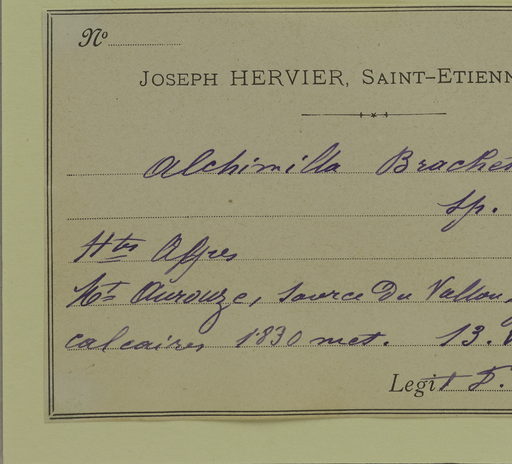 No
JOSEPH HERVIER, SAINT-ETIENN
Alchimilla Brachet
sp.
Htes Alpes
Mt Aurouze, source du Vallon,
calcaires 1830 met. 13.
Legit